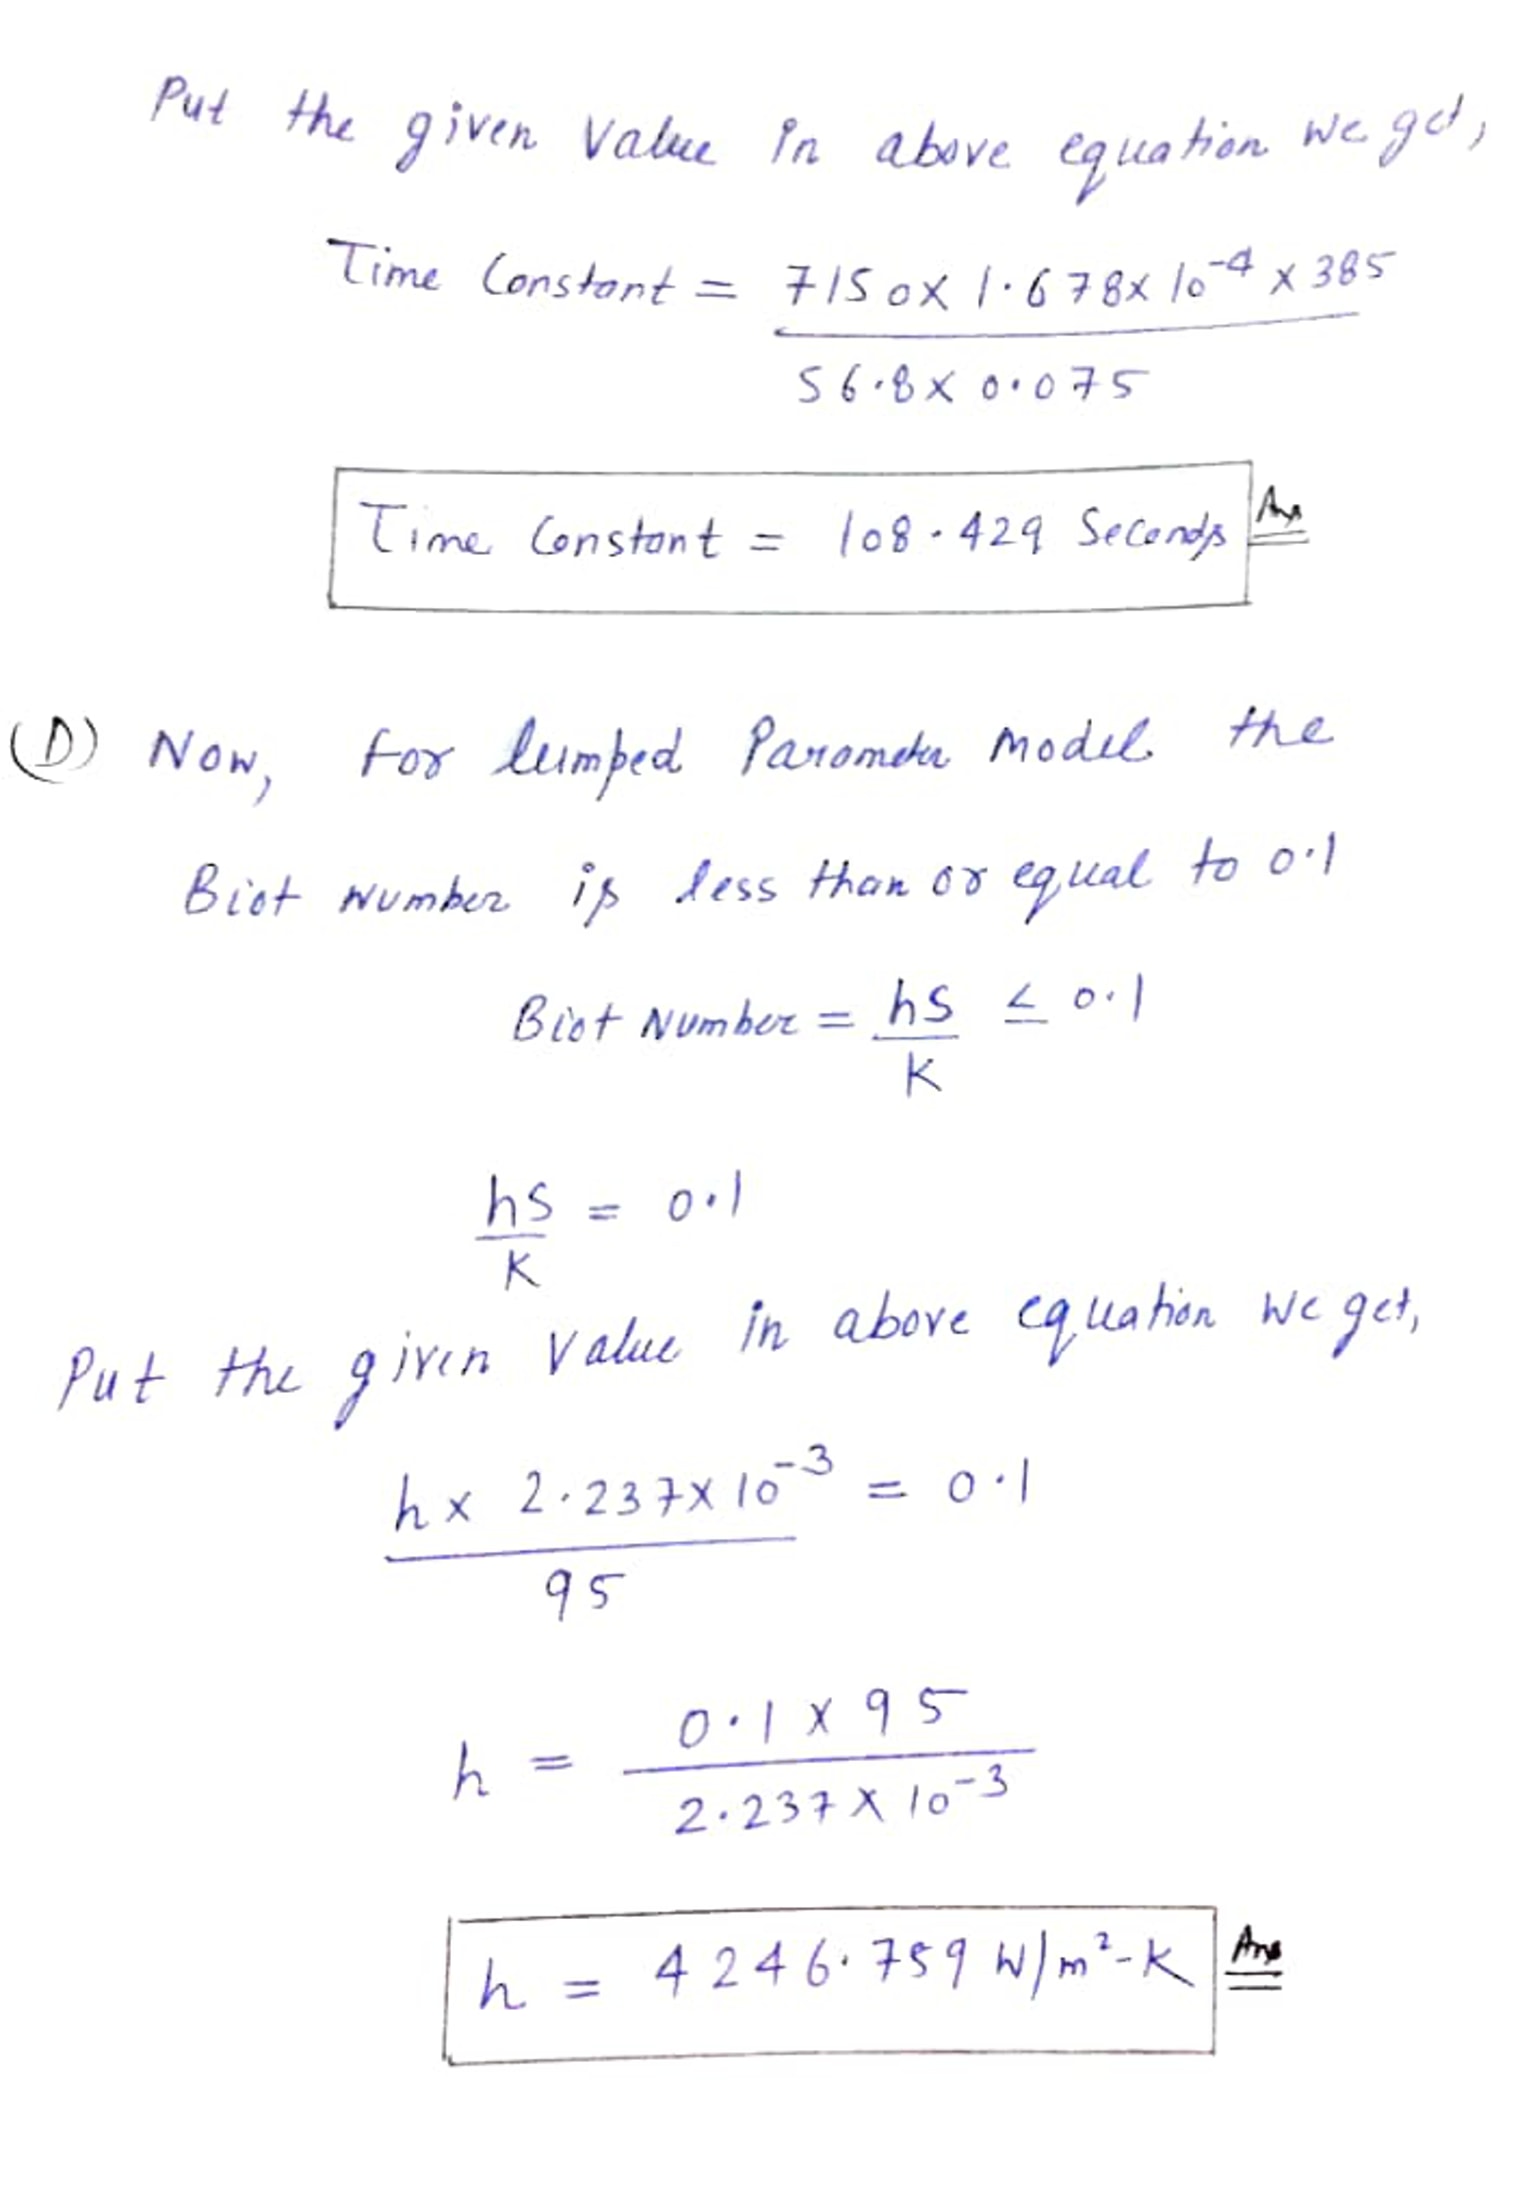 Put the given Value in above equation we get,
Time Constant = 7150 x 1.678 x 10^-4 x 385
56.8 x 0.075
Time Constant = 108.429 Seconds Ans
(D) Now, for lumped Parameter Model the
Biot Number is less than or equal to 0.1
Biot Number = hS ≤ 0.1
K
hS = 0.1
K
Put the given Value in above equation we get,
h x 2.237 x 10^-3 = 0.1
95
h = 0.1 x 95
2.237 x 10^-3
h = 4246.759 W/m²-K Ans